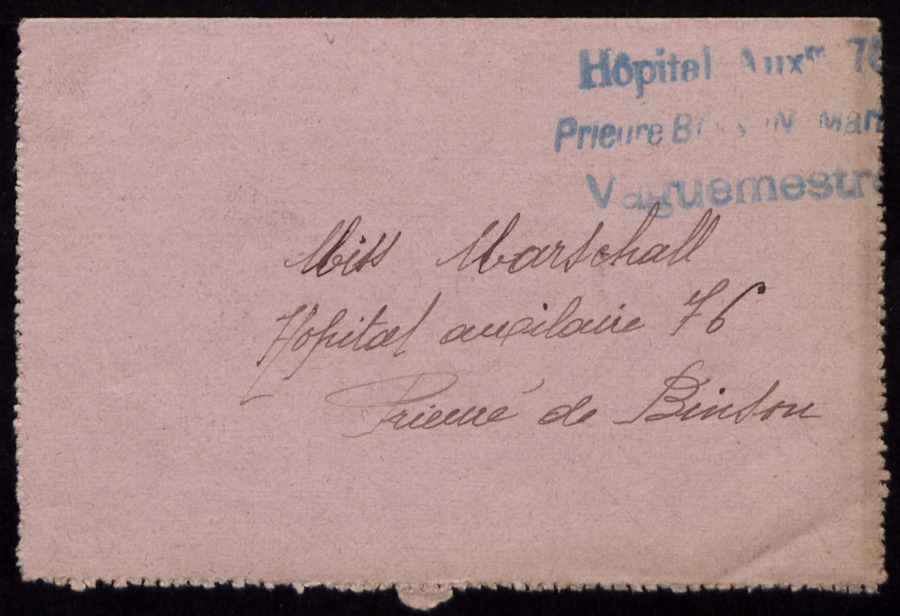 Hôpital Auxre 76
Prieuré
Vaguemestre
Miss Marschall
Hopital auxilaire 76
Prieuré de Binson